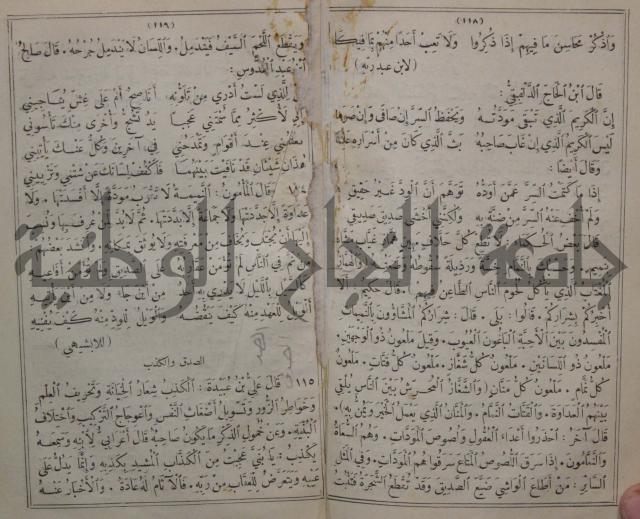 (١١٨)
وَاذْكُرْ مَحَاسِنَ مَا فِيهِمْ إِذَا ذُكِرُوا وَلَا تَعِبْ أَحَدًا مِنْهُمْ بِمَا فِيكَا
(لابن عبد ربّه)
قَالَ ابْنُ الْحَاجِّ الدِّلَفِيقِيُّ:
إِنَّ الْكَرِيمَ الَّذِي تَبْقَى مَوَدَّتُهُ وَيَحْفَظُ السِّرَّ إِنْ صَافَى وَإِنْ صَرَمَا
لَيْسَ الْكَرِيمُ الَّذِي إِنْ غَابَ صَاحِبُهُ بَثَّ الَّذِي كَانَ مِنْ أَسْرَارِهِ عَلِمَا
وَقَالَ أَيْضًا:
إِذَا مَا كَتَمْتُ السِّرَّ عَمَّنْ أَوَدُّهُ تَوَهَّمَ أَنَّ الْوُدَّ غَيْرُ حَقِيقِ
وَلَمْ أُخْفِ عَنْهُ السِّرَّ مِنْ ضِنَّةٍ بِهِ وَلٰكِنَّنِي أَخْشَى صَدِيقَ صَدِيقِي
قَالَ بَعْضُ الْحُكَمَاءِ: لَا تُطِعْ كُلَّ حَلَّافٍ مَهِينٍ هَمَّازٍ
النَّاسِ الطَّاعِنِ فِيهِمْ. قَالَ حَكِيمٌ: أَلَا
أُخْبِرُكُمْ بِشِرَارِكُمْ. قَالُوا: بَلَى. قَالَ: شِرَارُكُمُ الْمَشَّاؤُونَ بِالنَّمِيمَاتِ
الْمُفْسِدُونَ بَيْنَ الْأَحِبَّةِ الْبَاغُونَ الْعُيُوبَ. وَقِيلَ مَلْعُونٌ ذُو الْوَجْهَيْنِ.
مَلْعُونٌ ذُو اللِّسَانَيْنِ. مَلْعُونٌ كُلُّ شَغَّازٍ. مَلْعُونٌ كُلُّ قَتَّاتٍ. مَلْعُونٌ
كُلُّ نَمَّامٍ. مَلْعُونٌ كُلُّ مَنَّانٍ (وَالشَّغَّازُ الْمُحَرِّشُ بَيْنَ النَّاسِ يُلْقِي
بَيْنَهُمُ الْعَدَاوَةَ. وَالْقَتَّاتُ النَّمَّامُ. وَالْمَنَّانُ الَّذِي يَعْمَلُ الْخَيْرَ وَيَمُنُّ بِهِ).
قَالَ آخَرُ: احْذَرُوا أَعْدَاءَ الْعُقُولِ وَلُصُوصَ الْمَوَدَّاتِ. وَهُمُ السُّعَاةُ
وَالنَّمَّامُونَ. إِذَا سَرَقَ اللُّصُوصُ الْمَتَاعَ سَرَقُوا هُمُ الْمَوَدَّاتِ. وَفِي الْمَثَلِ
السَّائِرِ: مَنْ أَطَاعَ الْوَاشِيَ ضَيَّعَ الصَّدِيقَ وَقَدْ تُقْطَعُ الشَّجَرَةُ فَتَنْبُتُ
(١١٩)
وَيَقْطَعُ اللَّحْمَ السَّيْفُ فَيَنْدَمِلُ. وَاللِّسَانُ لَا يَنْدَمِلُ جُرْحُهُ. قَالَ صَالِحُ
ابْنُ عَبْدِ الْقُدُّوسِ:
الَّذِي لَسْتُ أَدْرِي مِنْ تَلَوُّنِهِ أَنَاصِحٌ أَمْ عَلَى غِشٍّ يُنَاجِينِي
لَأَكْثَرُ مِمَّا سُمْتَنِي عَجَبًا يَدٌ تَشُجُّ وَأُخْرَى مِنْكَ تَأْسُونِي
عِنْدَ أَقْوَامٍ وَتَمْدَحُنِي فِي آخَرِينَ وَكُلٌّ عَنْكَ يَأْتِينِي
هٰذَانِ شَيْئَانِ قَدْ نَافَيْتَ بَيْنَهُمَا فَاكْفُفْ لِسَانَكَ عَنْ شَتْمِي وَتَزْيِينِي
قَالَ الْمَأْمُونُ: النَّمِيمَةُ لَا تُقَرِّبُ مَوَدَّةً إِلَّا أَفْسَدَتْهَا. وَلَا
عَدَاوَةً إِلَّا جَدَّدَتْهَا وَلَا جَمَاعَةً إِلَّا بَدَّدَتْهَا. ثُمَّ لَا بُدَّ لِمَنْ عُرِفَ بِهَا وَنُسِبَ
إِلَيْهَا أَنْ يُجْتَنَبَ وَيُخَافَ مِنْ مَعْرِفَتِهِ وَلَا يُوثَقَ بِمَكَانِهِ. وَأَنْشَدَ بَعْضُهُمْ
مَنْ نَمَّ فِي النَّاسِ لَمْ تُؤْمَنْ عَقَارِبُهُ عَلَى الصَّدِيقِ وَلَمْ تُؤْمَنْ أَفَاعِيهِ
كَالسَّيْلِ بِاللَّيْلِ لَا يَدْرِي بِهِ أَحَدٌ مِنْ أَيْنَ جَاءَ وَلَا مِنْ أَيْنَ يَأْتِيهِ
الْوَيْلُ لِلْعَهْدِ مِنْهُ كَيْفَ يَنْقُضُهُ وَالْوَيْلُ لِلْوُدِّ مِنْهُ كَيْفَ يُفْنِيهِ
(للابشيهي)
الصدق والكذب
١١٥ قَالَ عَلِيُّ بْنُ عُبَيْدَةَ: الْكَذِبُ شِعَارُ الْخِيَانَةِ وَتَحْرِيفُ الْعِلْمِ
وَخَوَاطِرُ الزُّورِ وَتَسْوِيلُ أَضْغَاثِ النَّفْسِ وَاعْوِجَاجُ التَّرْكِيبِ وَاخْتِلَافُ
الْبِنْيَةِ. وَعَنْ خُمُولِ الذِّكْرِ مَا يَكُونُ صَاحِبُهُ قَالَ أَعْرَابِيٌّ لِابْنِهِ وَسَمِعَهُ
يَكْذِبُ: يَا بُنَيَّ عَجِبْتُ مِنَ الْكَذَّابِ الْمُشِيدِ بِكَذِبِهِ وَإِنَّمَا يَدُلُّ عَلَى
عَيْبِهِ وَيَتَعَرَّضُ لِلْعِقَابِ مِنْ رَبِّهِ. فَالْآثَامُ لَهُ عَادَةٌ. وَالْأَخْبَارُ عَنْهُ
جامعة النجاح الوطنية